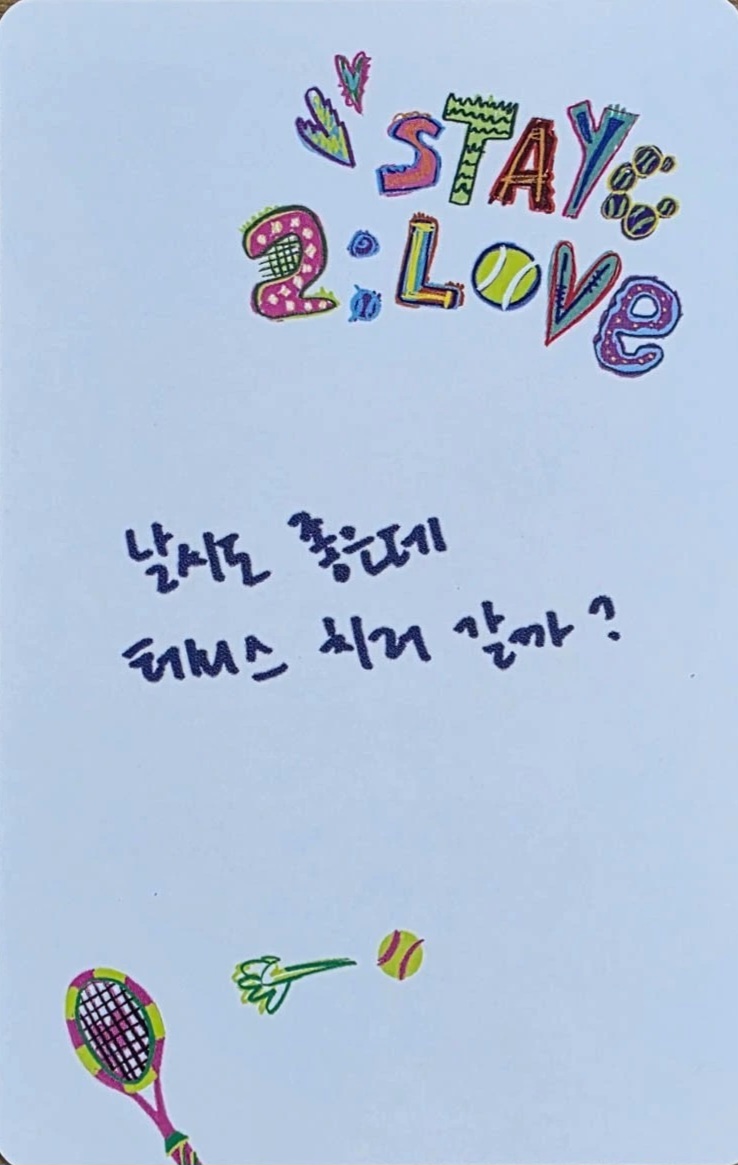 STAYC
2:LOVe
날씨도 좋은데
테니스 치러 갈까?